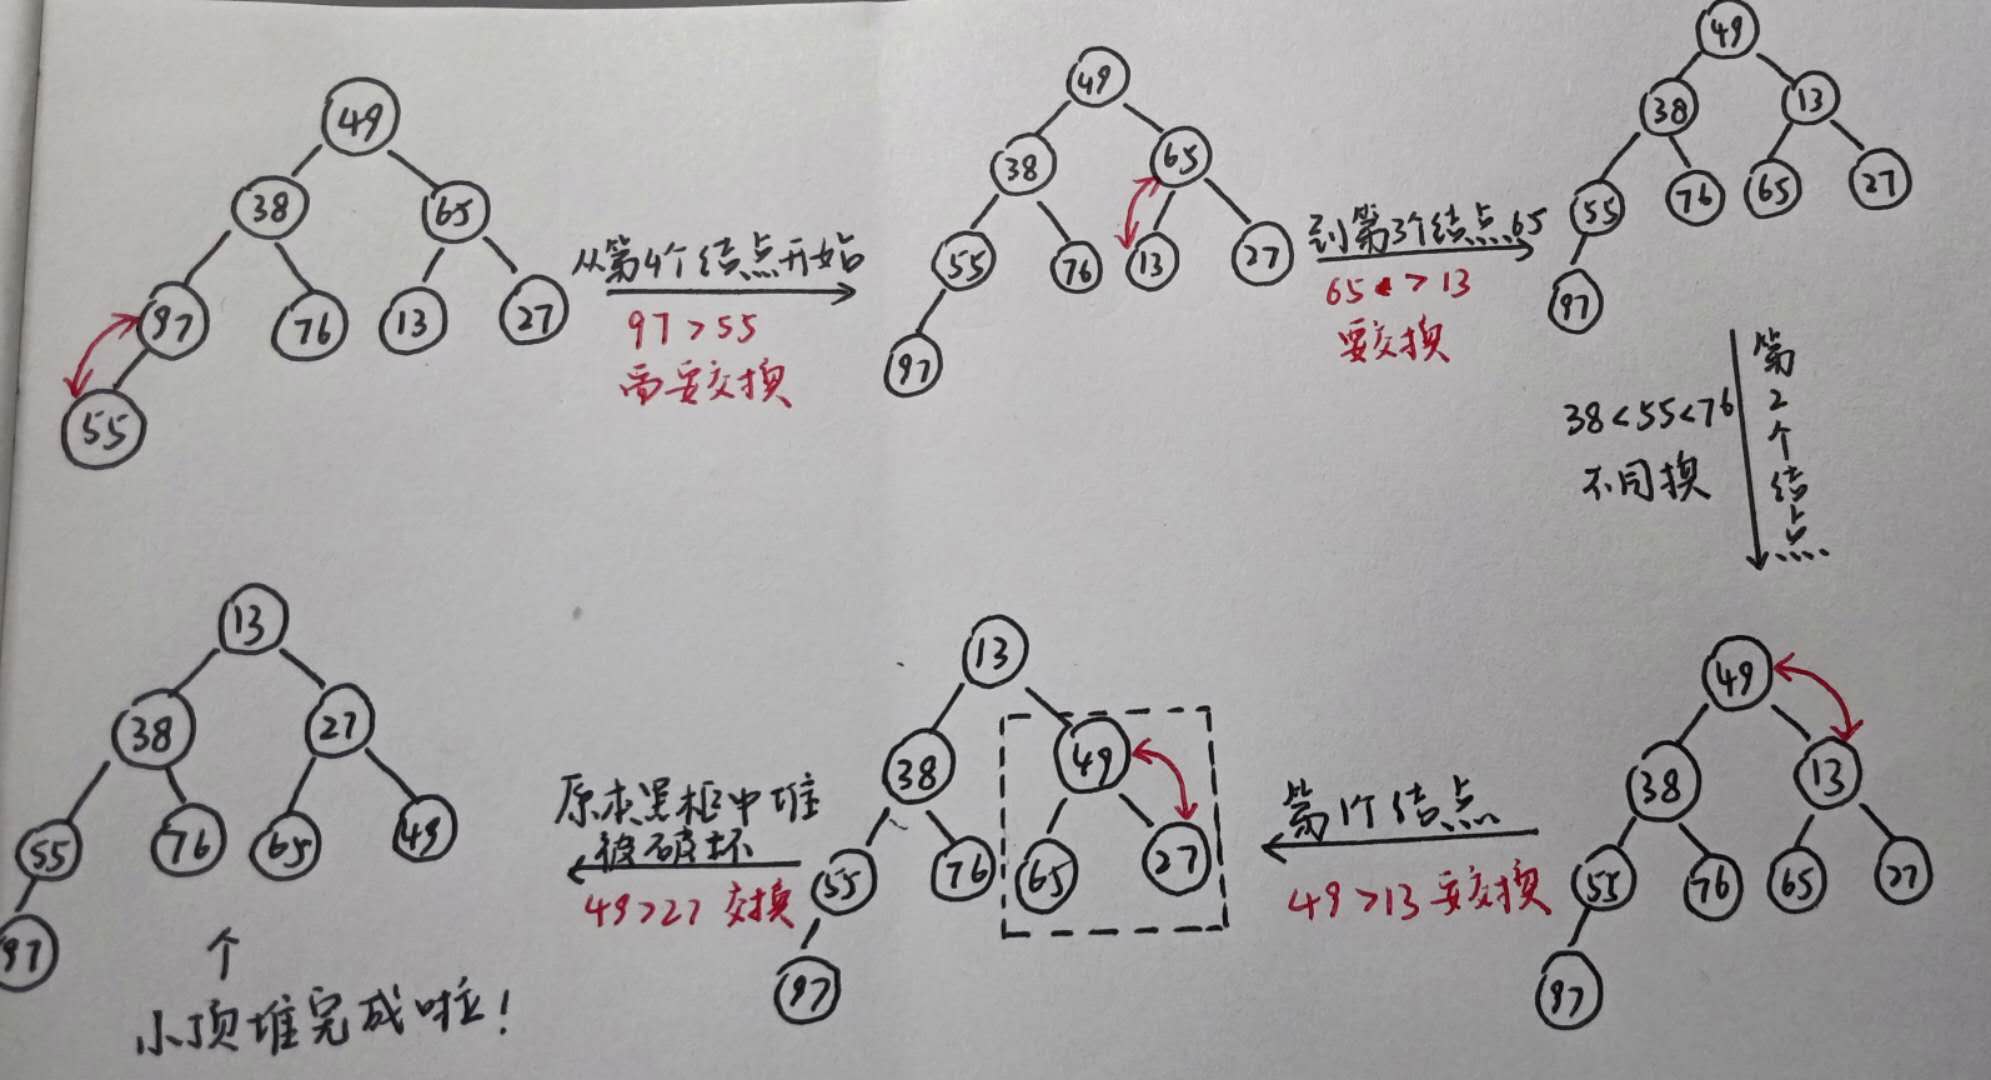 49
38
65
97
76
13
27
55
从第4个结点开始
97>55
需要交换
49
38
65
55
76
13
27
97
到第3个结点65
65<>13
要交换
49
38
13
55
76
65
27
97
第2个结点
38<55<76
不同换
49
38
13
55
76
65
27
97
第1个结点
49>13 要交换
13
38
49
55
76
65
27
97
原本黑框中堆
被破坏
49>27 交换
13
38
27
55
76
65
49
97
个
小顶堆完成啦!